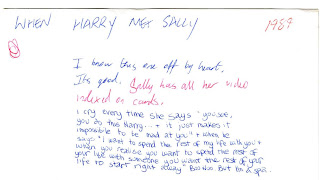 WHEN HARRY MET SALLY 1989
I know this one off by heart.
Its good. Sally has all her video
indexed on cards.
I cry every time she says "you see,
you do this Harry... + it just makes it
impossible to be mad at you" + when he
says "I want to spend the rest of my life with you +
when you realise you want to spend the rest of
your life with someone you want the rest of your
life to start right away" Boo hoo. But I'm a